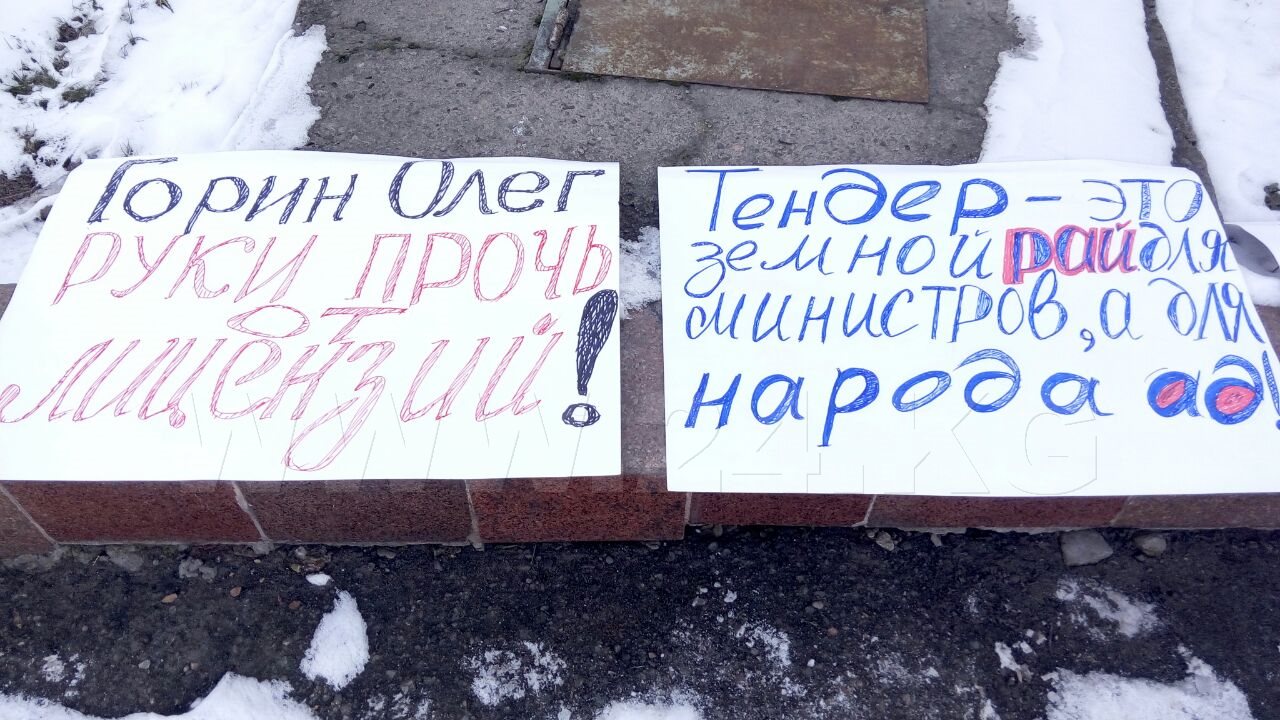 Горин Олег
РУКИ ПРОЧЬ
ОТ
лицензий!
Тендер - это
земной рай для
министров, а для
народа ад!
WWW.24.KG